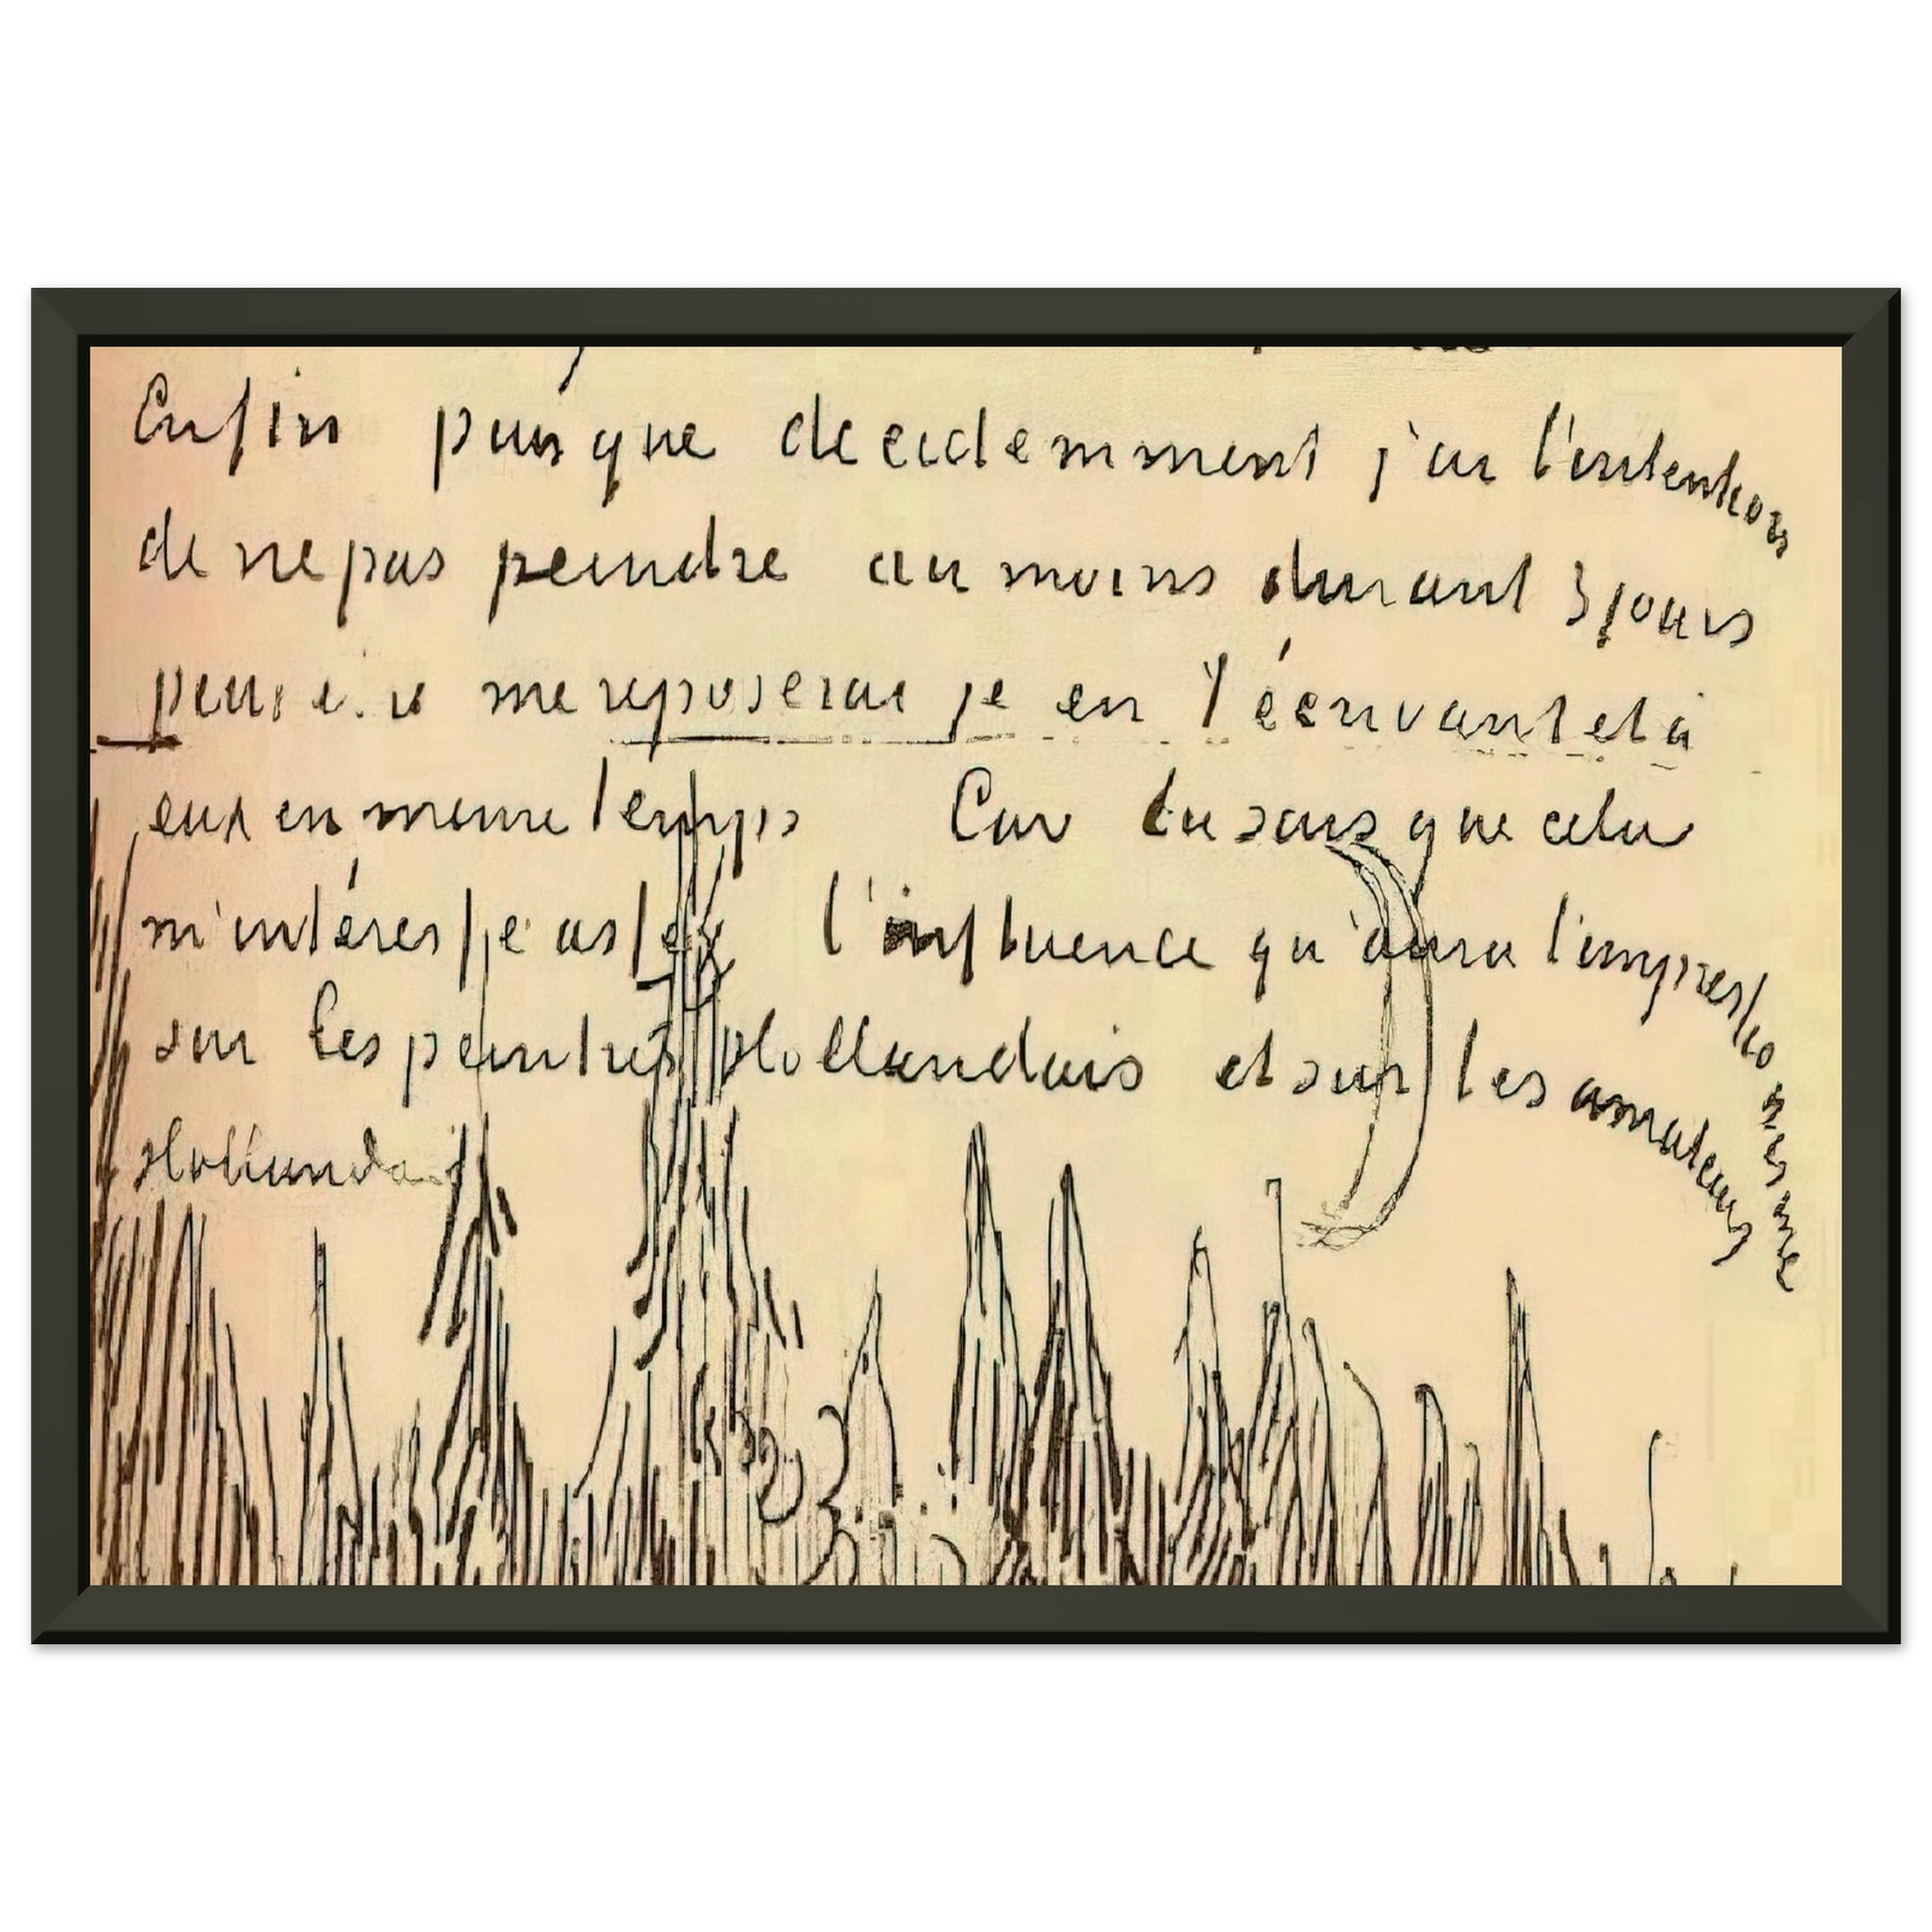 Enfin puisque decidemment j'ai l'intention
de ne pas peindre au moins durant 3 jours
peut me reposerai je en t'écrivant et à
eux en meme temps Car tu sais que cela
m'intéresse assez l'influence qu'aura l'impressionisme
sur les peintres Hollandais et sur les amateurs
Hollandais